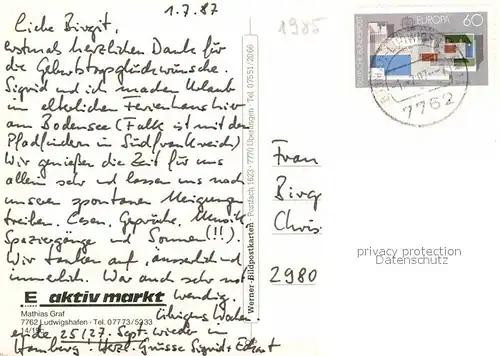 1.7.87
Liebe Birgit,
erstmal herzlichen Dank für
die Geburtstagsglückwünsche.
Sigrid und ich machen Urlaub
im elterlichen Ferienhaus hier
am Bodensee (Falk ist mit den
Pfadfindern in Südfrankreich)
Wir genießen die Zeit für uns
allein sehr und lassen uns nach
unseren spontanen Neigungen
treiben. Lesen, Gespräche, Musik,
Spaziergänge und Sonnen (!!).
Wir tanken auf, äusserlich und
innerlich. War auch sehr not-
wendig.
E aktiv markt
Mathias Graf
7762 Ludwigshafen · Tel. 07773/5233
Übrigens Wochen
ende 25/27. Sept. wieder in
Hamburg. Herzl. Grüsse Sigrid + Eckart
Werner-Bildpostkarten · Postfach 1623 · 7770 Überlingen · Tel. 07551/2066
1985
DEUTSCHE BUNDESPOST
EUROPA 60
7762
Frau
Birg
Chris
2980
privacy protection
Datenschutz